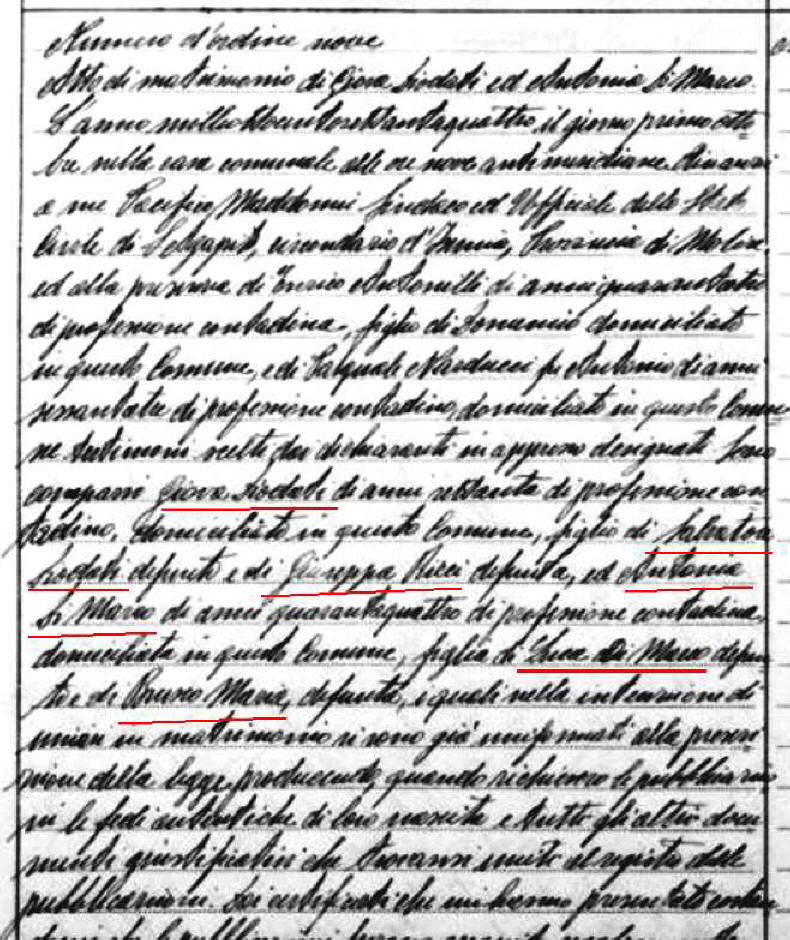 Numero d'ordine nove
Atto di matrimonio di Giova Diodati ed Antonia Di Marco
L'anno milleottocentosettantaquattro, il giorno primo otto
bre nella casa comunale alle ore nove antimeridiane Dinanzi
a me Pacifico Sindaco ed Uffiziale dello Stato
Civile di circondario d' Provincia di Molise
ed alla presenza di Enrico Antonelli di anni
di professione contadino, figlio di domiciliato
in questo Comune, e di Pasquale Narducci fu Antonio di anni
di professione contadino, domiciliato in questo Comu
ne testimoni scelti dai dichiaranti in appresso designati Sono
comparsi Giova Diodati di anni settanta di professione con
tadino, domiciliato in questo Comune, figlio di Salvatore
Diodati defunto e di Giuseppa Ricci defunta, ed Antonia
Di Marco di anni quarantaquattro di professione contadina,
domiciliata in questo Comune, figlia di Luca Di Marco defun
to e di Maria, defunta, i quali nella intenzione di
unirsi in matrimonio si sono già uniformati alla prescri
zione della legge producendo, quando richiesero le pubblicazio
ni le fedi autentiche di loro nascita e tutti gli altri docu
menti giustificativi che trovansi uniti al registro delle
pubblicazioni. Dai certificati che mi hanno presentato